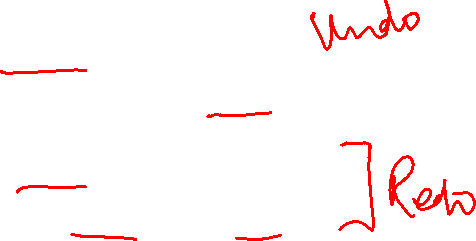 Undo
Redo